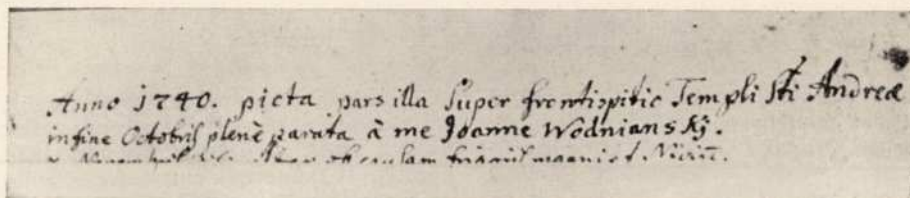 Anno 1740. picta pars illa Super frontispitio Templi Sti Andreæ
in fine Octobris plenè parata à me Joanne Wodniansky.
ob causam frigoris magni et